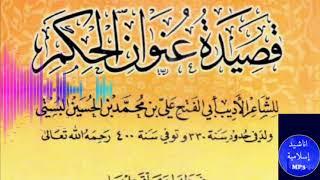 قَصِيدَةُ عُنْوَانِ الْحِكَمِ
لِلشَّاعِرِ الْأَدِيبِ أَبِي الْفَتْحِ عَلِيِّ بْنِ مُحَمَّدِ بْنِ الْحُسَيْنِ الْبُسْتِيِّ
وُلِدَ فِي حُدُودِ سَنَةِ ٣٣٠ وَتُوُفِّيَ سَنَةَ ٤٠٠ رَحِمَهُ اللهُ تَعَالَى
اناشيد
إسلامية
MP3